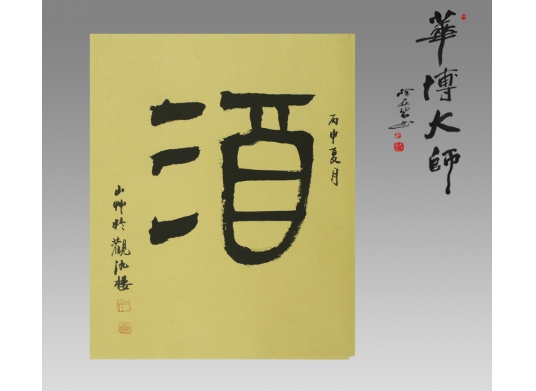 酒
丙申夏月
山艸於觀沈樓
華博大師